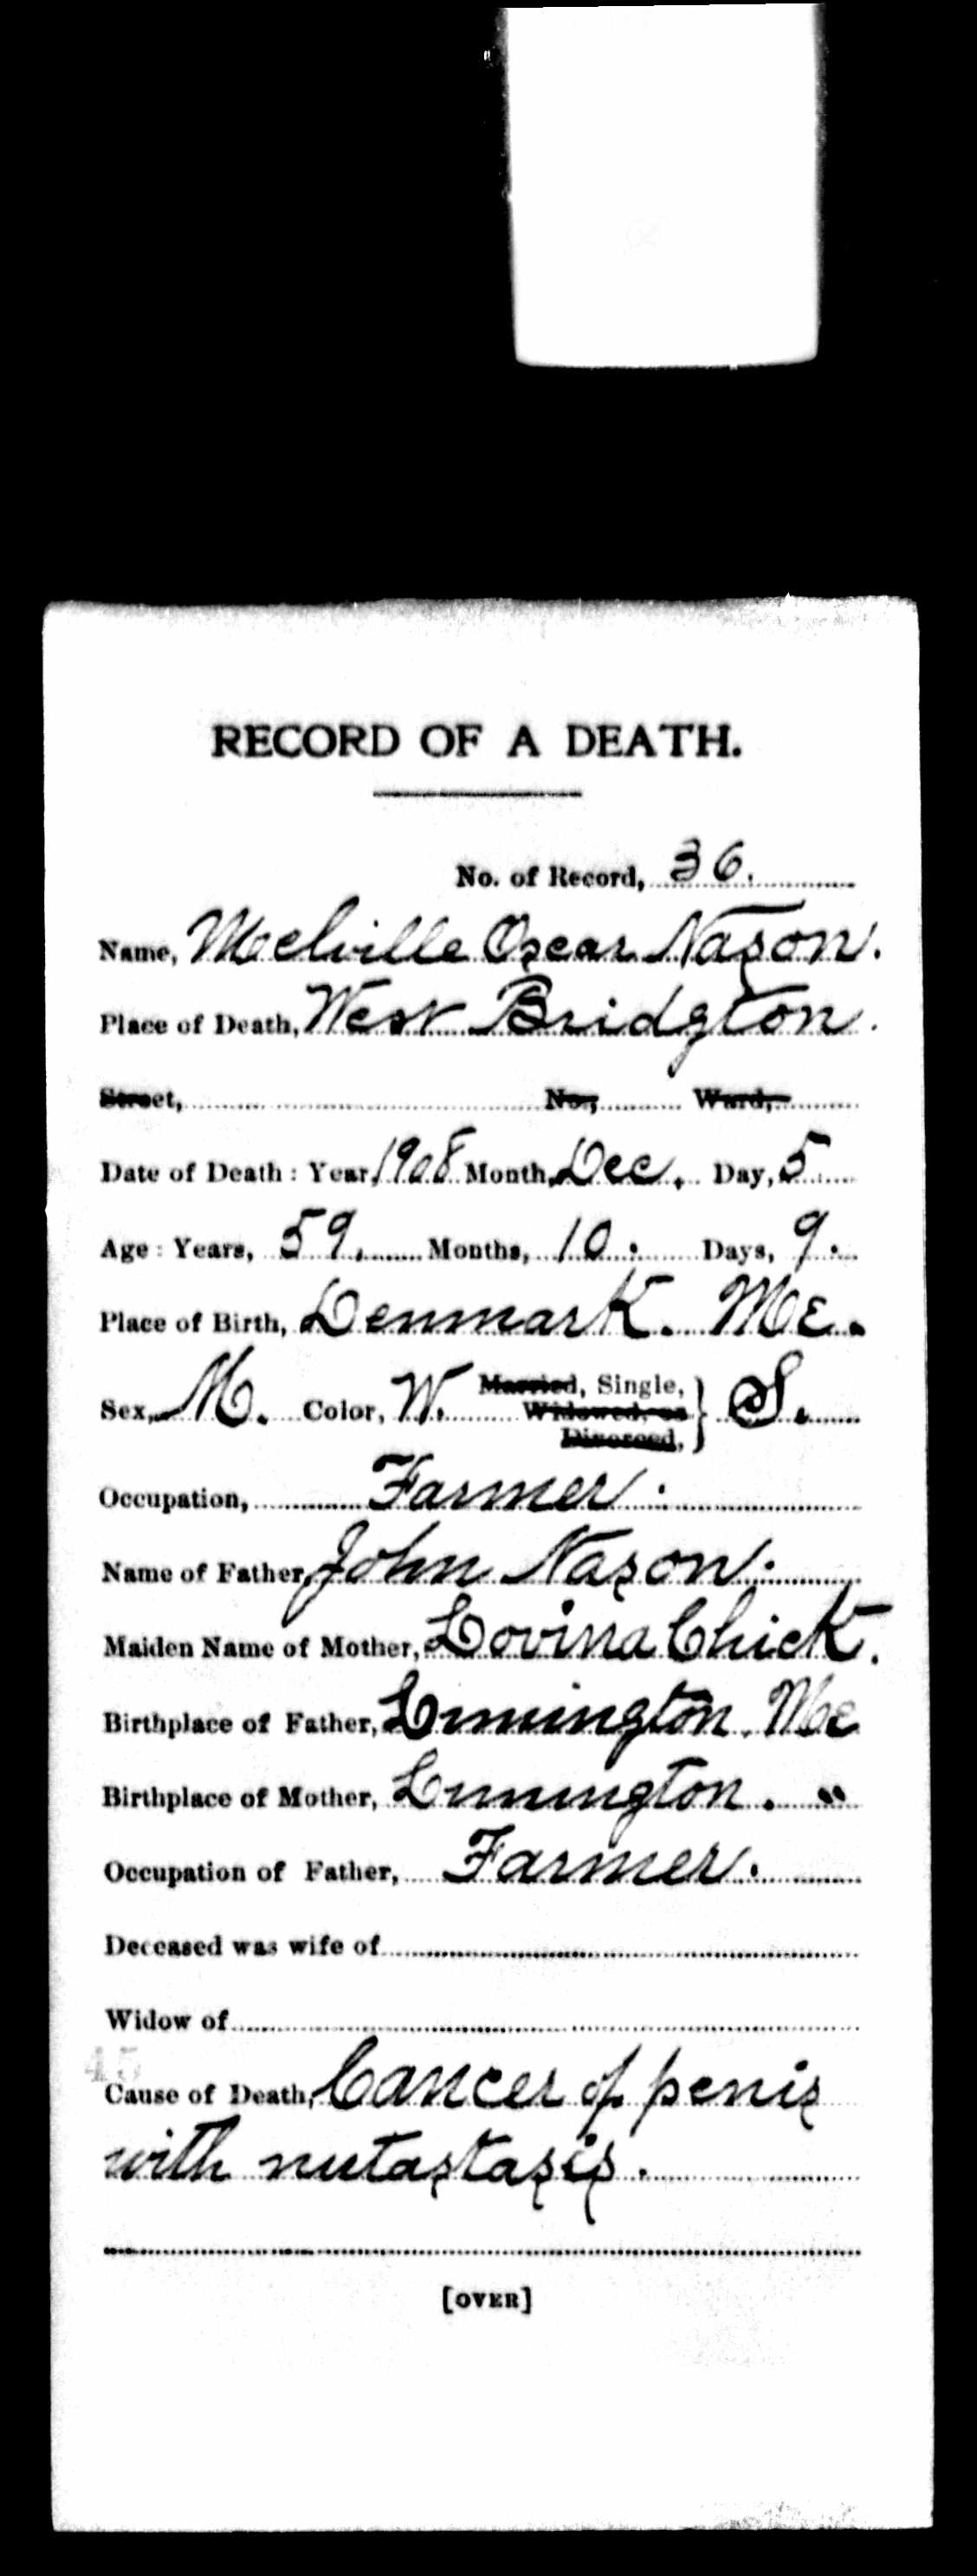 RECORD OF A DEATH.
No. of Record, 36.
Name, Melville Oscar Nason.
Place of Death, West Bridgton.
Street, No., Ward,
Date of Death: Year, 1908 Month, Dec. Day, 5
Age: Years, 59, Months, 10. Days, 9.
Place of Birth, Denmark. Me.
Sex, M. Color, W. Married, Single, Widowed, or Divorced, } S.
Occupation, Farmer.
Name of Father, John Nason.
Maiden Name of Mother, Lovina Chick.
Birthplace of Father, Limington. Me
Birthplace of Mother, Limington. "
Occupation of Father, Farmer.
Deceased was wife of
Widow of
45
Cause of Death, Cancer of penis
with mutastasis.
[OVER]